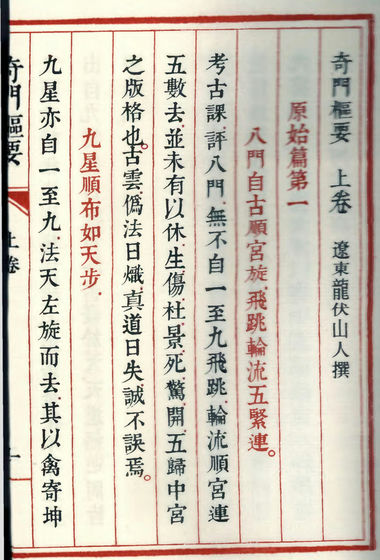 奇門樞要 上卷 遼東龍伏山人撰
原始篇第一
八門自古順宮旋.飛跳輪流五緊連。
考古課.評八門.無不自一至九飛跳.輪流順宮
五數去.並未有以休.生傷.杜景.死驚.開.五歸中宮
之版格也。古雲.僞法日熾.真道日失.誠不誤焉。
九星順布如天步.
九星亦自一至九.法天左旋而去.其以禽寄坤
奇門樞要 上卷 一